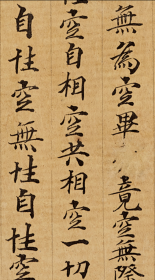 無為空畢竟空無際
性空自相空共相空一切
自性空無性自性空